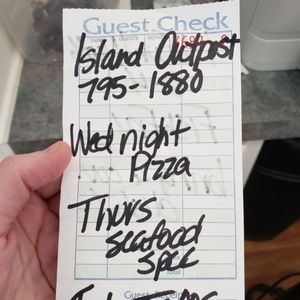 Guest Check
Island Outpost
795-1880
Wed night
Pizza
Thurs
seafood
spec
Total